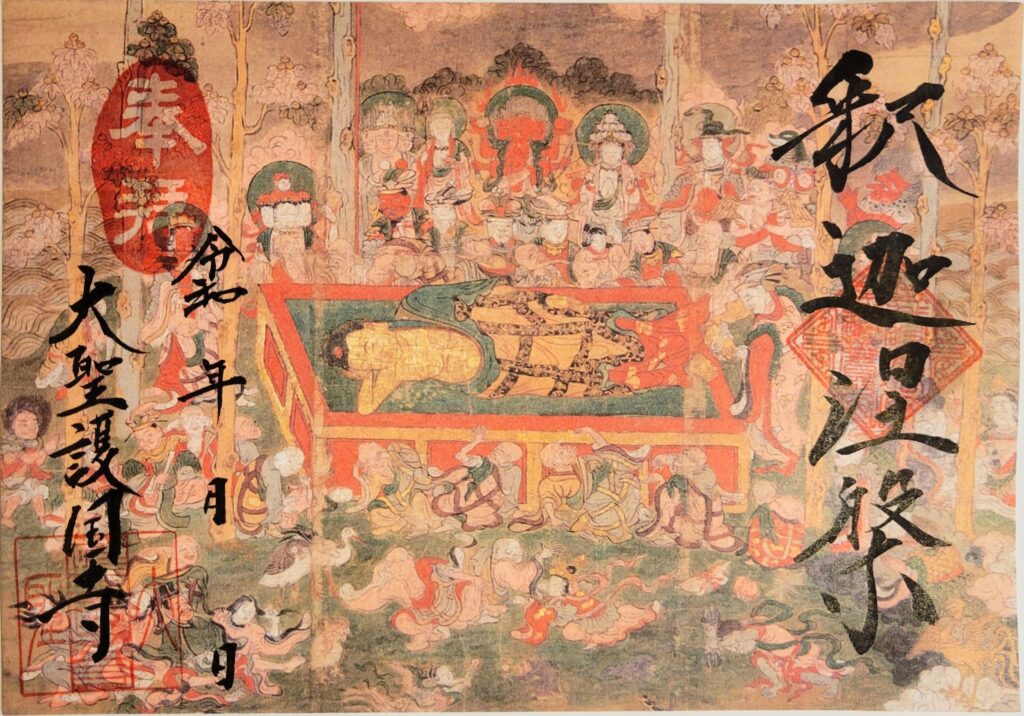 釈迦涅槃
奉拝
令和 年 月 日
大聖護国寺